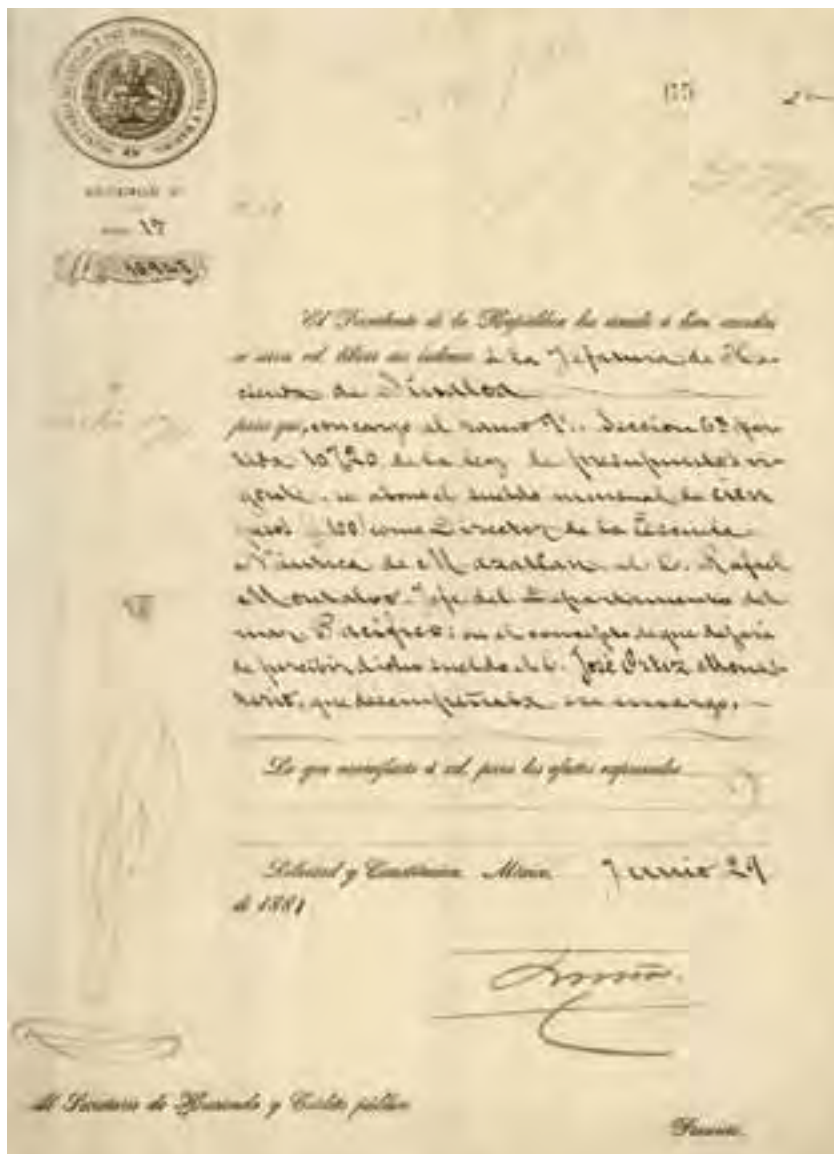 17
El Presidente de la República ha tenido á bien acordar
se sirva vd. librar sus órdenes á la Jefatura de Ha-
cienda de Sinaloa
para que, con cargo al ramo 9º. Sección 6ª par-
tida 10720 de la ley de presupuestos vi-
gente, se abone el sueldo mensual de cien
pesos 100 como Director de la Escuela
Náutica de Mazatlan al C. Rafael
Montalvo, Jefe del Departamento del
mar Pacífico; en el concepto de que dejará
de percibir dicho sueldo el C. José Ortiz Monas-
terio, que desempeñaba ese encargo.
Lo que manifiesto á vd. para los efectos
Libertad y Constitución. México, Junio 29
de 1881
Al Secretario de Hacienda y Crédito público
Presente.